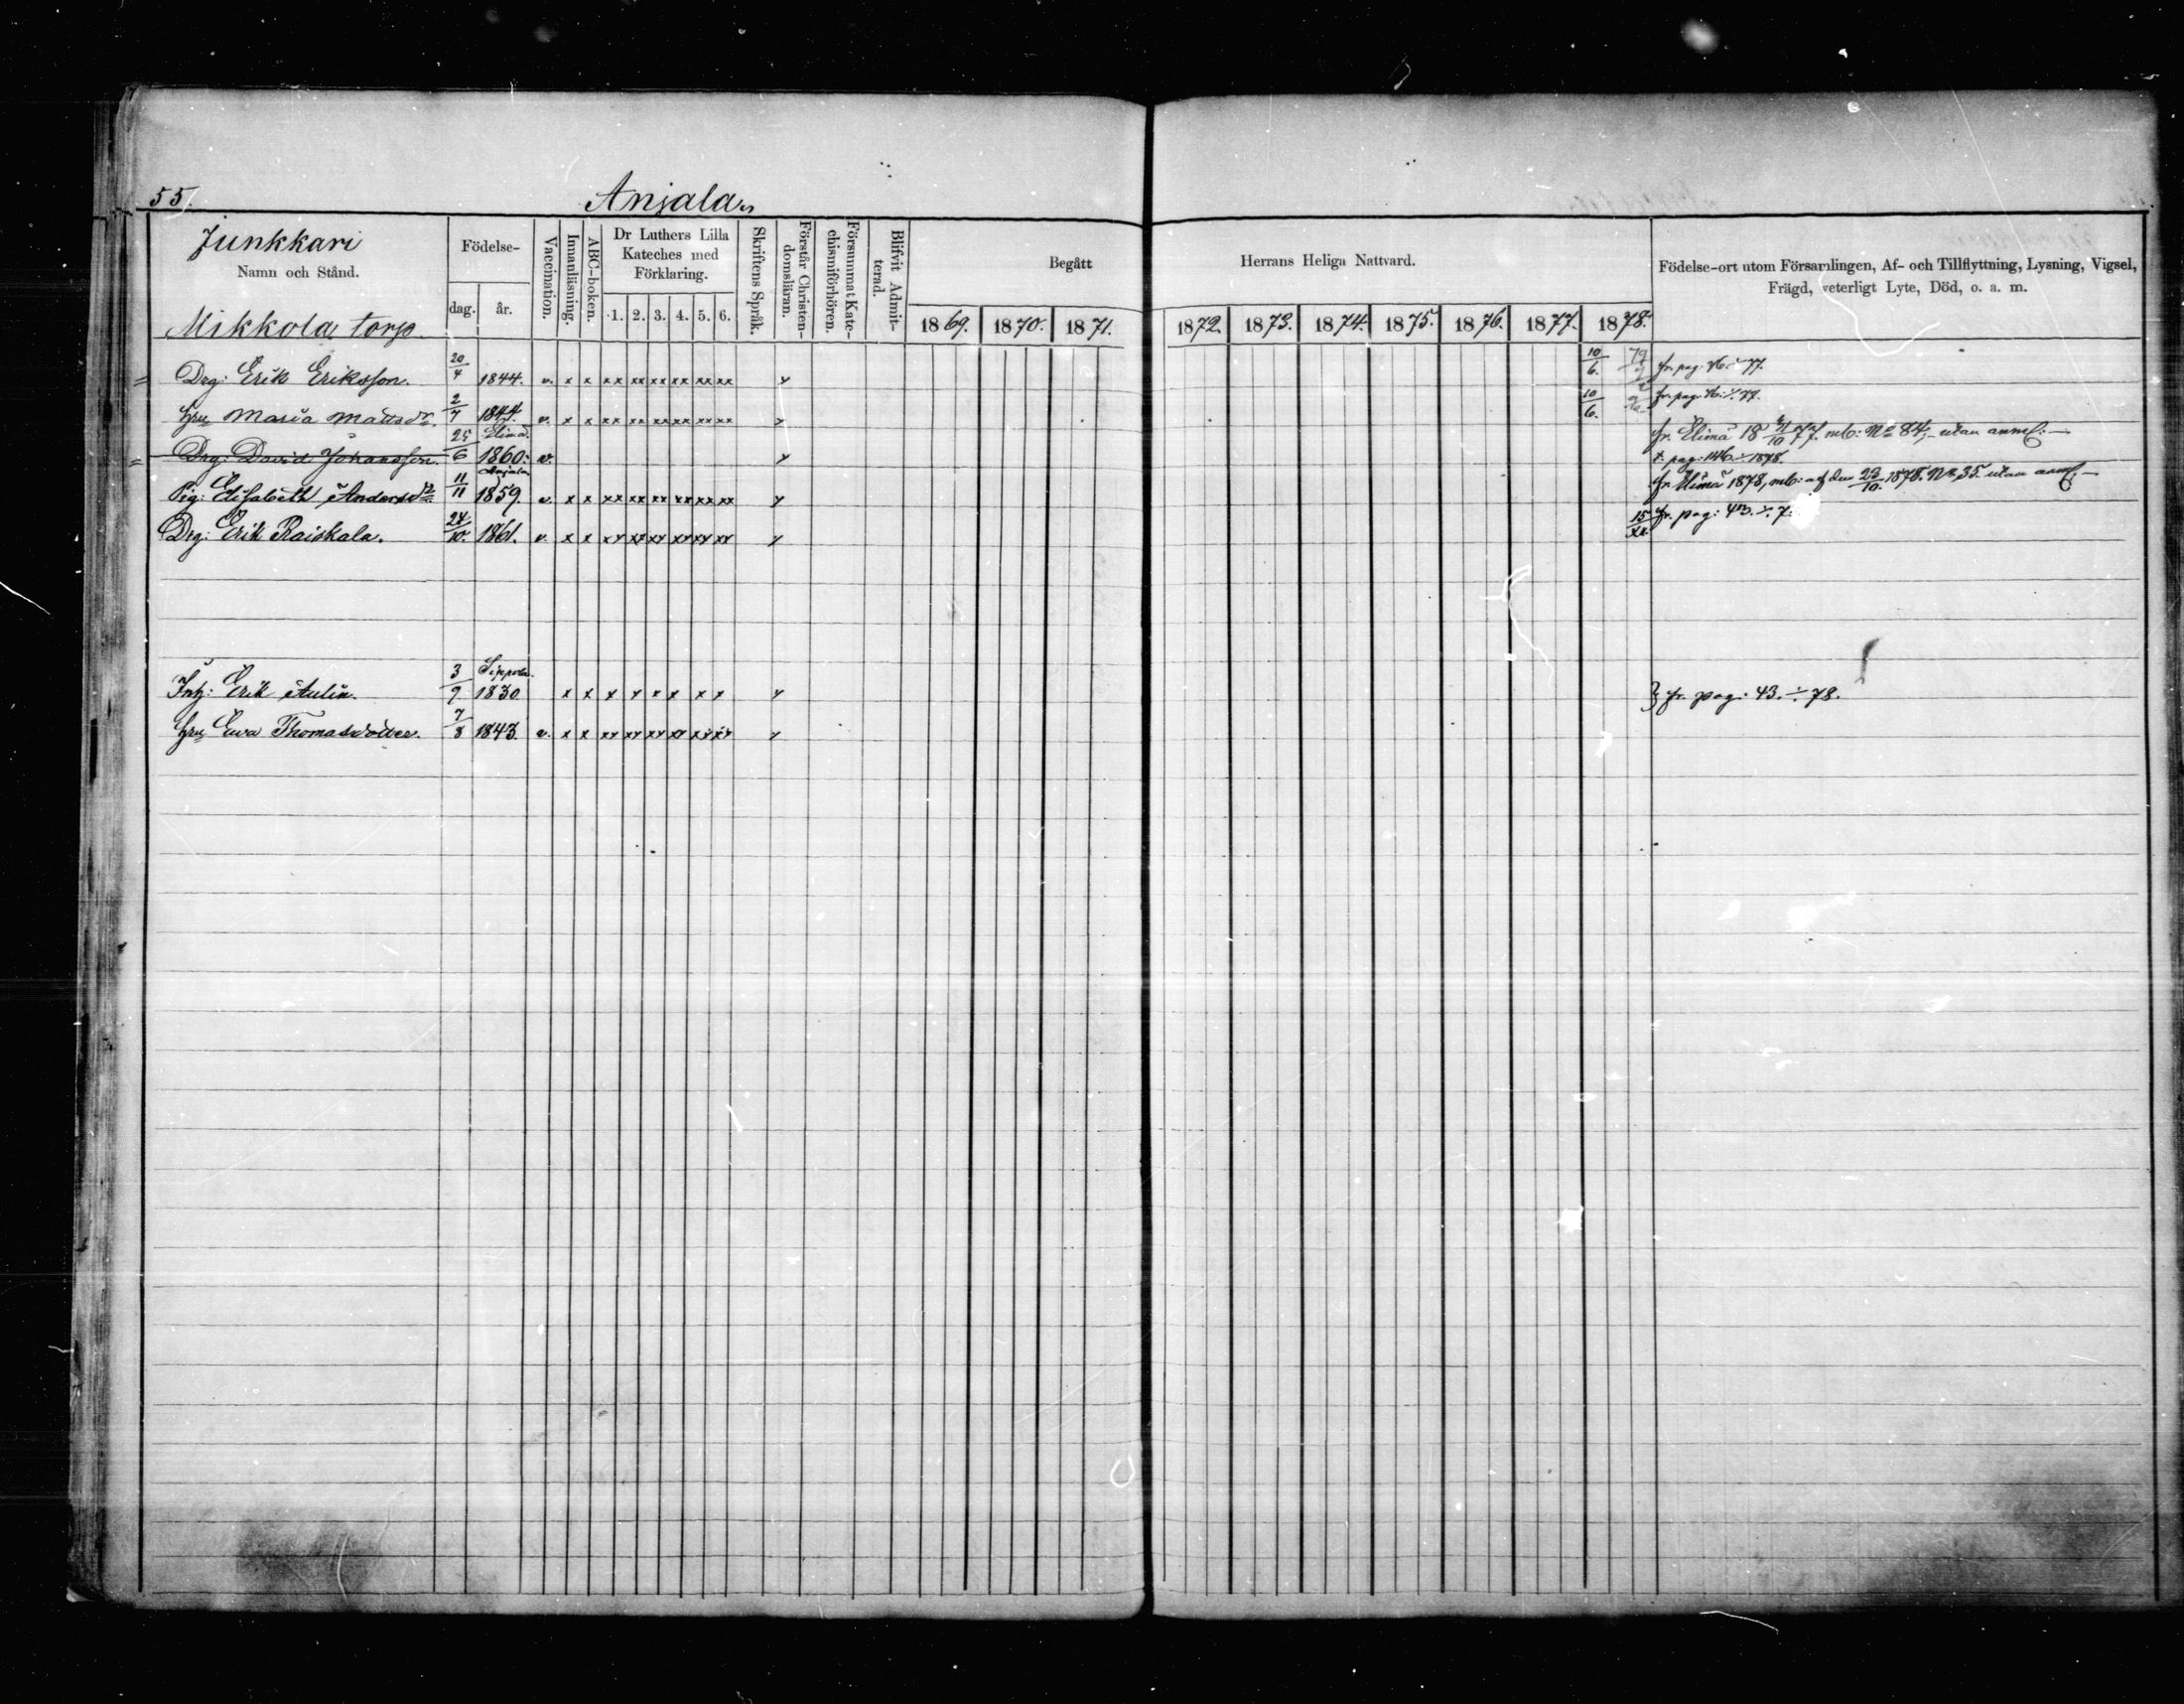 55.
Anjala
Junkkari
Namn och Stånd.
Mikkola torp.
Födelse-
dag. år.
Vaccination.
Innanläsning.
ABC-boken.
Dr Luthers Lilla
Kateches med
Förklaring.
1. 2. 3. 4. 5. 6.
Skriftens Språk.
Förstår Christen-
domsläran.
Försummat Kate-
chismiförhören.
Blifvit Admit-
terad.
Begått Herrans Heliga Nattvard.
1869. 1870. 1871. 1872. 1873. 1874. 1875. 1876. 1877. 1878.
Födelse-ort utom Församlingen, Af- och Tillflyttning, Lysning, Vigsel,
Frägd, veterligt Lyte, Död, o. a. m.
Drg: Erik Eriksson. 20/4 1844. v. x x xx xx xx xx xx xx x 10/6. fr. pag. 76. ÷ 77.
Hru Maria Mattsdr. 2/7 1844. v. x x xx xx xx xx xx xx x 10/6. fr. pag. 76. ÷ 77.
Elimä
Drg: David Johansson. 25/6 1860. v. x fr. Elimä 18 /10 77. mb: No 84, utan anm.
t. pag. 146 ÷ 1878.
Anjala
Pig: Elisabeth Andersdr 11/11 1859. v. x x xx xx xx xx xx xx x fr. Elimä 1878, mb: af den 23/10. 1878. No 35. utan anm.
Drg: Erik Raiskala. 24/10. 1861. v. x x xx xx xx xx xx xx x 15/ fr. pag: 43. ÷ 7
Sippola.
Inh: Erik Aulin. 3/9 1830 x x x x x x x x x } fr. pag: 43. ÷ 78.
Hru Ewa Thomasdotter. 7/8 1843. v. x x xx xx xx xx xx xx x